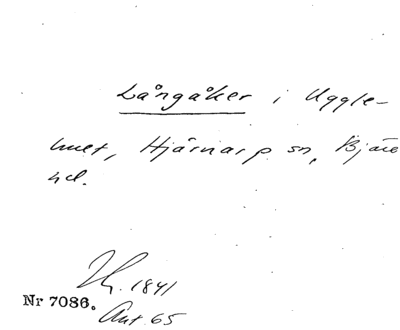 Långåker i Uggle-
hult, Hjärnarp sn, Bjäre
hd.
Ht. 1841
Nr 7086.
Akt 65